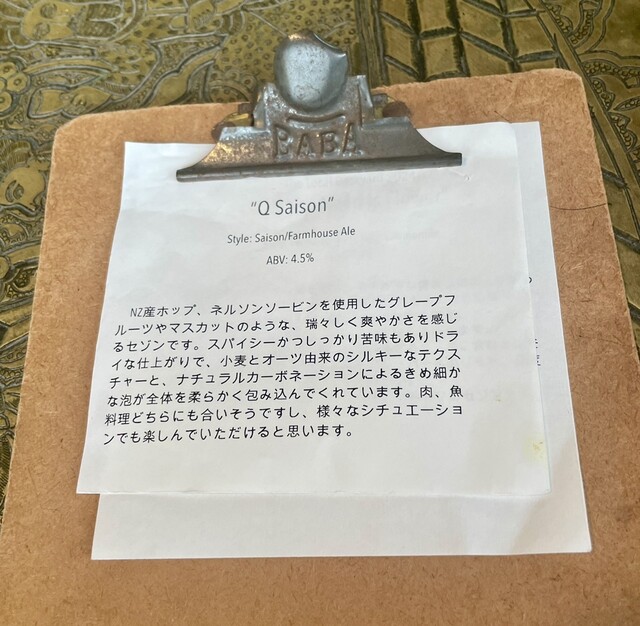 BABA
“Q Saison”
Style: Saison/Farmhouse Ale
ABV: 4.5%
NZ産ホップ、ネルソンソービンを使用したグレープフ
ルーツやマスカットのような、瑞々しく爽やかさを感じ
るセゾンです。スパイシーかつしっかり苦味もありドラ
イな仕上がりで、小麦とオーツ由来のシルキーなテクス
チャーと、ナチュラルカーボネーションによるきめ細か
な泡が全体を柔らかく包み込んでくれています。肉、魚
料理どちらにも合いそうですし、様々なシチュエーショ
ンでも楽しんでいただけると思います。